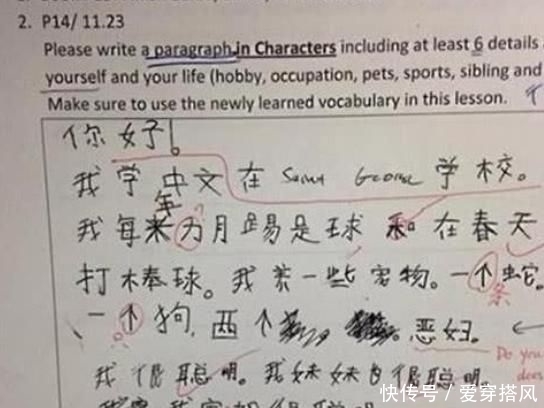 2. P14/ 11.23
Please write a paragraph in Characters including at least 6 details
yourself and your life (hobby, occupation, pets, sports, sibling and
Make sure to use the newly learned vocabulary in this lesson.
你好!
我学中文在 Saint George 学校。
年
我每来为月踢是球和在春天
打棒球。我养一些宠物。一个蛇。
条
一个狗,西个 恶妇。
Do you
does
我很聪明。我妹妹白很聪明。
快传号 / 爱穿搭风